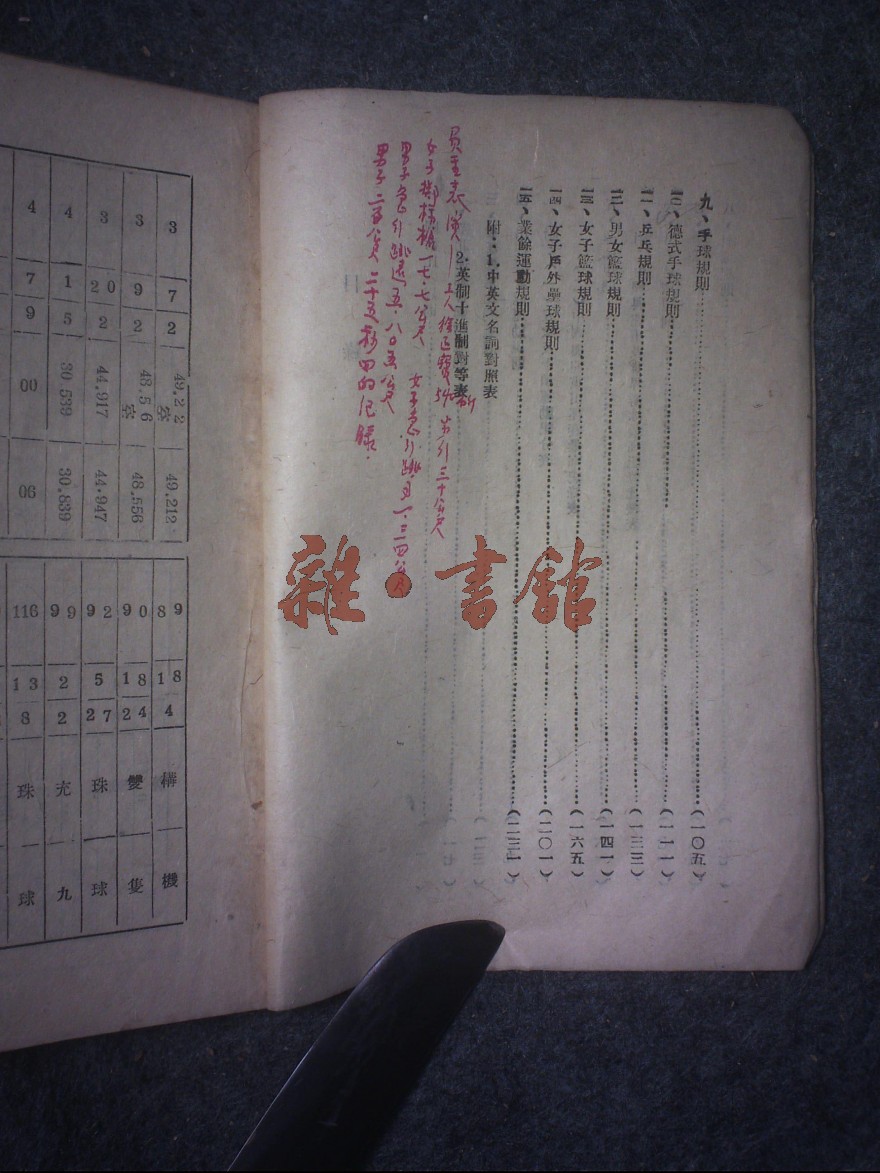 九、手球規則（一〇五）
一〇、德式手球規則（一一一）
一一、乒乓規則（一三三）
一二、男女籃球規則（一四一）
一三、女子籃球規則（一六五）
一四、女子戶外壘球規則（二〇一）
一五、業餘運動規則（二三一）
附：1.中英文名詞對照表
2.英制十進制對等表
女子擲標槍一七·七公尺
男子急行跳遠五·八〇五公尺
男子二百公尺二十五秒四的記錄.
雜·書館
3 7 2 49.212
3 9 2 48.556
3 20 2 44.917 44.947
4 1 5 30.539 30.839
4 7 9 00 06
89 18 4 構 機
90 18 24 雙 隻
92 5 27 珠 球
99 2 2 充 九
116 13 8 珠 球